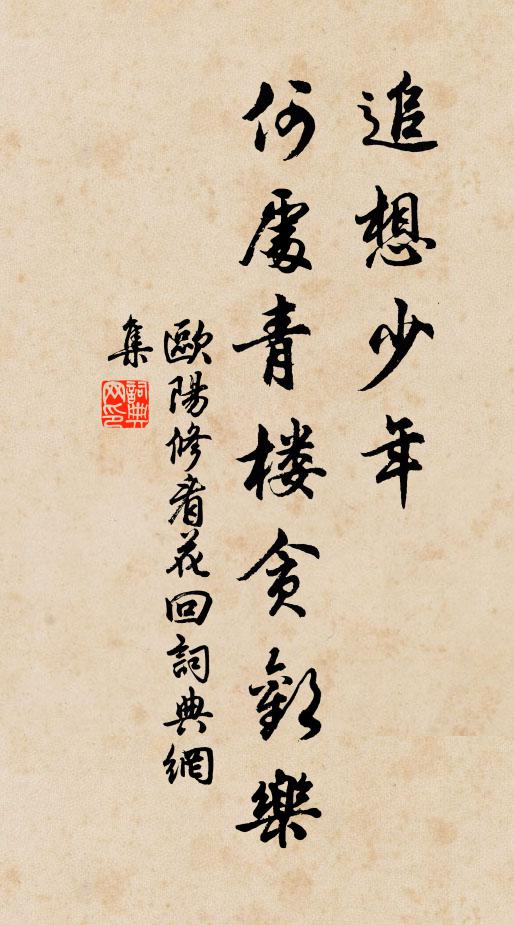 追想少年
何處青楼貪歡樂
歐陽修看花回詞典網
集
詞典网印